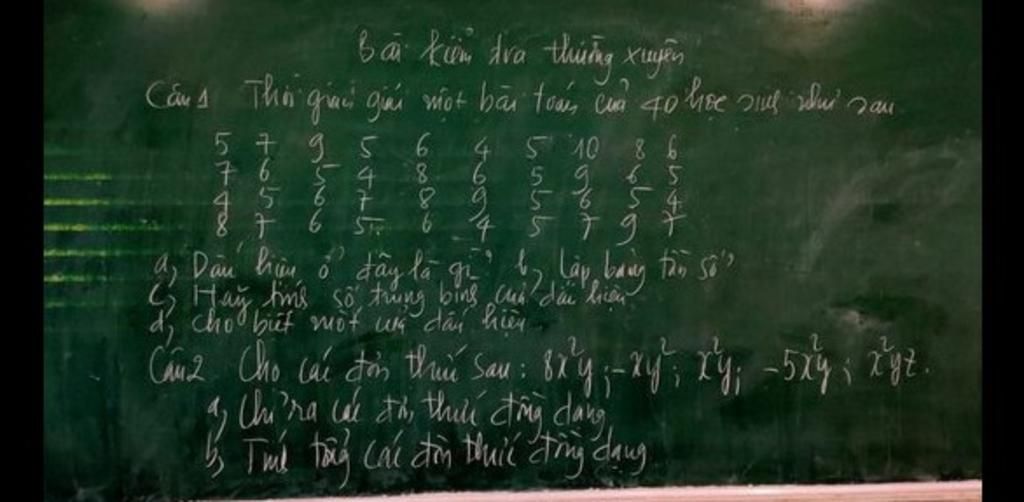 Bài kiểm tra thường xuyên
Câu 1 Thời gian giải một bài toán của 40 học sinh như sau
5 7 9 5 6 4 5 10 8 6
7 6 5 4 8 6 5 9 6 5
4 5 6 7 8 9 5 6 5 4
8 7 6 5 6 4 5 7 9 7
a, Dấu hiệu ở đây là gì? b, Lập bảng tần số
c, Hãy tính số trung bình của dấu hiệu
d, cho biết mốt của dấu hiệu
Câu 2 Cho các đơn thức sau: 8x²y; -xy²; x²y; -5x²y; x²yz.
a, Chỉ ra các đơn thức đồng dạng
b, Tính tổng các đơn thức đồng dạng